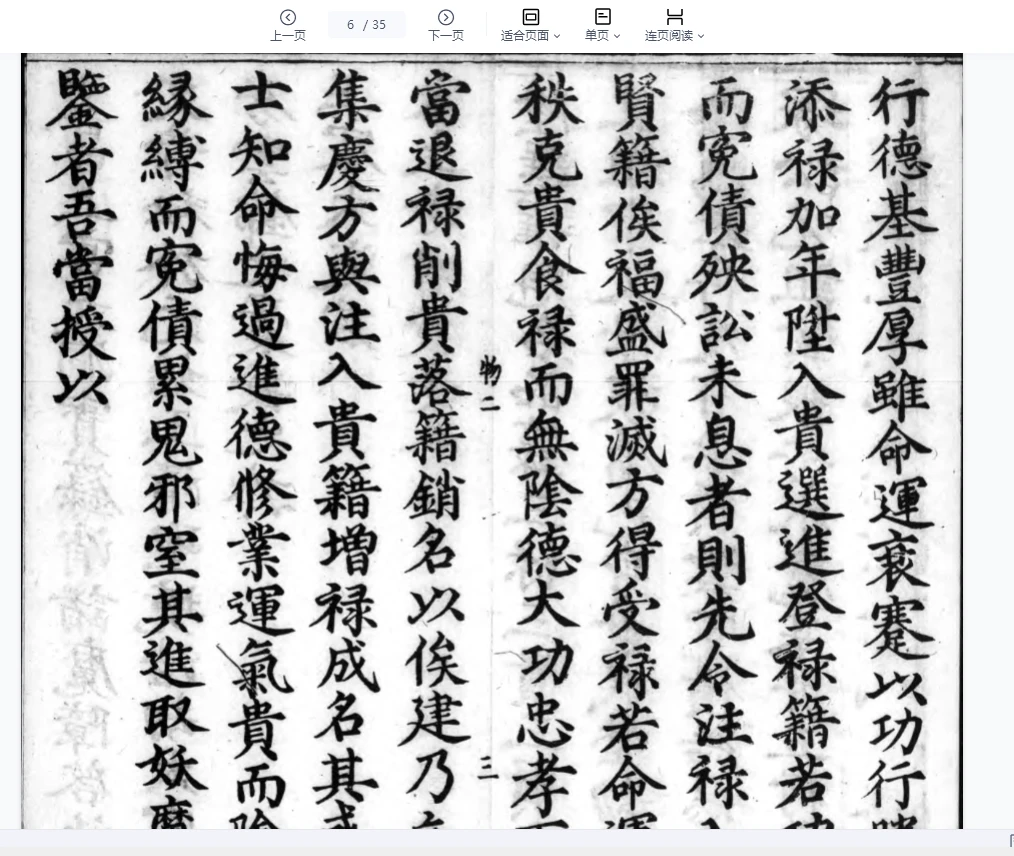 上一页
6 / 35
下一页
适合页面
单页
连页阅读
行德基豐厚雖命運衰蹇以功行
添禄加年陞入貴選進登禄籍若
而寃債殃訟未息者則先令注禄
賢籍俟福盛罪滅方得受禄若命
秩克貴食禄而無陰德大功忠孝
物二
三
當退禄削貴落籍銷名以俟建乃
集慶方與注入貴籍增禄成名其
士知命悔過進德修業運氣貴而
縁縛而寃債累鬼邪窒其進取妖魔
鑒者吾當授以